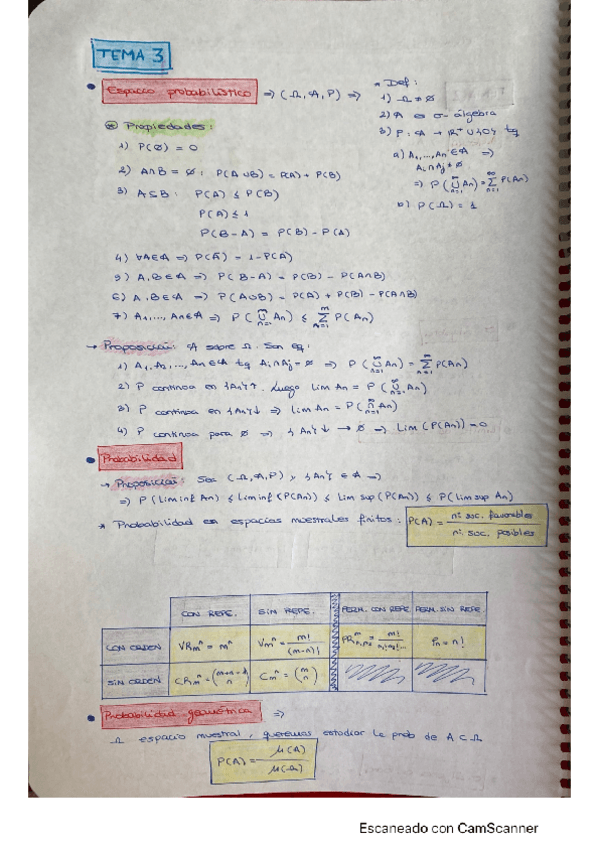 TEMA 3
• Espacio probabilístico => (Ω, A, P) =>
* Def:
1) Ω ≠ ∅
2) A es σ-álgebra
3) P: A → R⁺ ∪ {0} tq
a) A₁,...,An ∈ A =>
Ai ∩ Aj ≠ ∅
=> P(∪ An) = ∑ P(An)
b) P(Ω) = 1
* Propiedades:
1) P(∅) = 0
2) A∩B = ∅ : P(A∪B) = P(A) + P(B)
3) A⊆B : P(A) ≤ P(B)
P(A) ≤ 1
P(B-A) = P(B) - P(A)
4) ∀A∈A => P(Ā) = 1-P(A)
5) A,B∈A => P(B-A) = P(B) - P(A∩B)
6) A,B∈A => P(A∪B) = P(A) + P(B) - P(A∩B)
7) A₁,...,An∈A => P(∪ An) ≤ ∑ P(An)
→ Proposición: A sobre Ω. Son eq:
1) A₁, A₂,..., An∈A tq Ai∩Aj = ∅ => P(∪ An) = ∑ P(An)
2) P continua en {An}↑. Luego lim An = P(∪ An)
3) P continua en {An}↓ => lim An = P(∩ An)
4) P continua para ∅ => {An}↓ → ∅ => Lim (P(An)) = 0
• Probabilidad
→ Proposición: Sea (Ω, A, P) y {An} ∈ A =>
=> P(Liminf An) ≤ Liminf (P(An)) ≤ Lim sup (P(An)) ≤ P(lim sup An)
* Probabilidad en espacios muestrales finitos: P(A) = nº. suc. favorables / nº. suc. posibles
CON REPE. SIN REPE. PERM. CON REPE PERM. SIN REPE
CON ORDEN VRmⁿ = mⁿ Vmⁿ = m!/(m-n)! Pn = n!
SIN ORDEN CRmⁿ = (m+n-1 n) Cmⁿ = (m n)
• Probabilidad geométrica =>
Ω espacio muestral, queremos estudiar la prob de A ⊂ Ω
P(A) = μ(A) / μ(Ω)
Escaneado con CamScanner